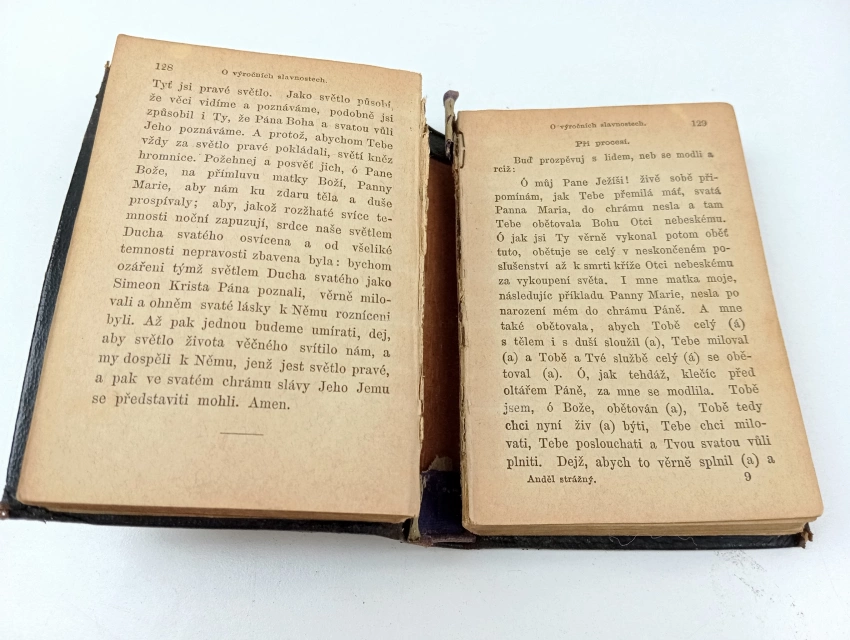 128
O výročních slavnostech.
Tyť jsi pravé světlo. Jako světlo působí,
že věci vidíme a poznáváme, podobně jsi
způsobil i Ty, že Pána Boha a svatou vůli
Jeho poznáváme. A protož, abychom Tebe
vždy za světlo pravé pokládali, světí kněz
hromnice. Požehnej a posvěť jich, ó Pane
Bože, na přímluvu matky Boží, Panny
Marie, aby nám ku zdaru těla a duše
prospívaly; aby, jakož rozžhaté svíce te-
mnosti noční zapuzují, srdce naše světlem
Ducha svatého osvícena a od všeliké
temnosti nepravosti zbavena byla: bychom
ozářeni týmž světlem Ducha svatého jako
Simeon Krista Pána poznali, věrně milo-
vali a ohněm svaté lásky k Němu rozníceni
byli. Až pak jednou budeme umírati, dej,
aby světlo života věčného svítilo nám, a
my dospěli k Němu, jenž jest světlo pravé,
a pak ve svatém chrámu slávy Jeho Jemu
se představiti mohli. Amen.
O výročních slavnostech.
129
Při procesí.
Buď prozpěvuj s lidem, neb se modli a
rciž:
Ó můj Pane Ježíši! živě sobě při-
pomínám, jak Tebe přemilá máť, svatá
Panna Maria, do chrámu nesla a tam
Tebe obětovala Bohu Otci nebeskému.
Ó jak jsi Ty věrně vykonal potom oběť
tuto, obětuje se celý v neskončeném po-
slušenství až k smrti kříže Otci nebeskému
za vykoupení světa. I mne matka moje,
následujíc příkladu Panny Marie, nesla po
narození mém do chrámu Páně. A mne
také obětovala, abych Tobě celý (á)
s tělem i s duší sloužil (a), Tebe miloval
(a) a Tobě a Tvé službě celý (á) se obě-
toval (a). Ó, jak tehdáž, klečíc před
oltářem Páně, za mne se modlila. Tobě
jsem, ó Bože, obětován (a), Tobě tedy
chci nyní živ (a) býti, Tebe chci milo-
vati, Tebe poslouchati a Tvou svatou vůli
plniti. Dejž, abych to věrně splnil (a) a
Anděl strážný.
9